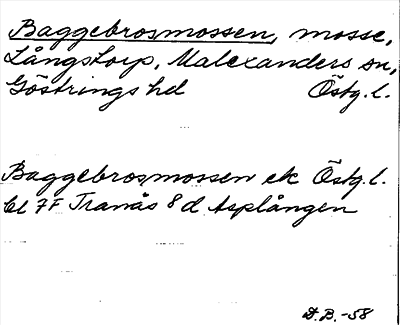 Baggebrosmossen, mosse,
Långstorp, Malexanders sn,
Göstrings hd Östg. l.
Baggebrosmossen ek Östg. l.
bl 7F Tranås 8 d Asplången
D.B. -58